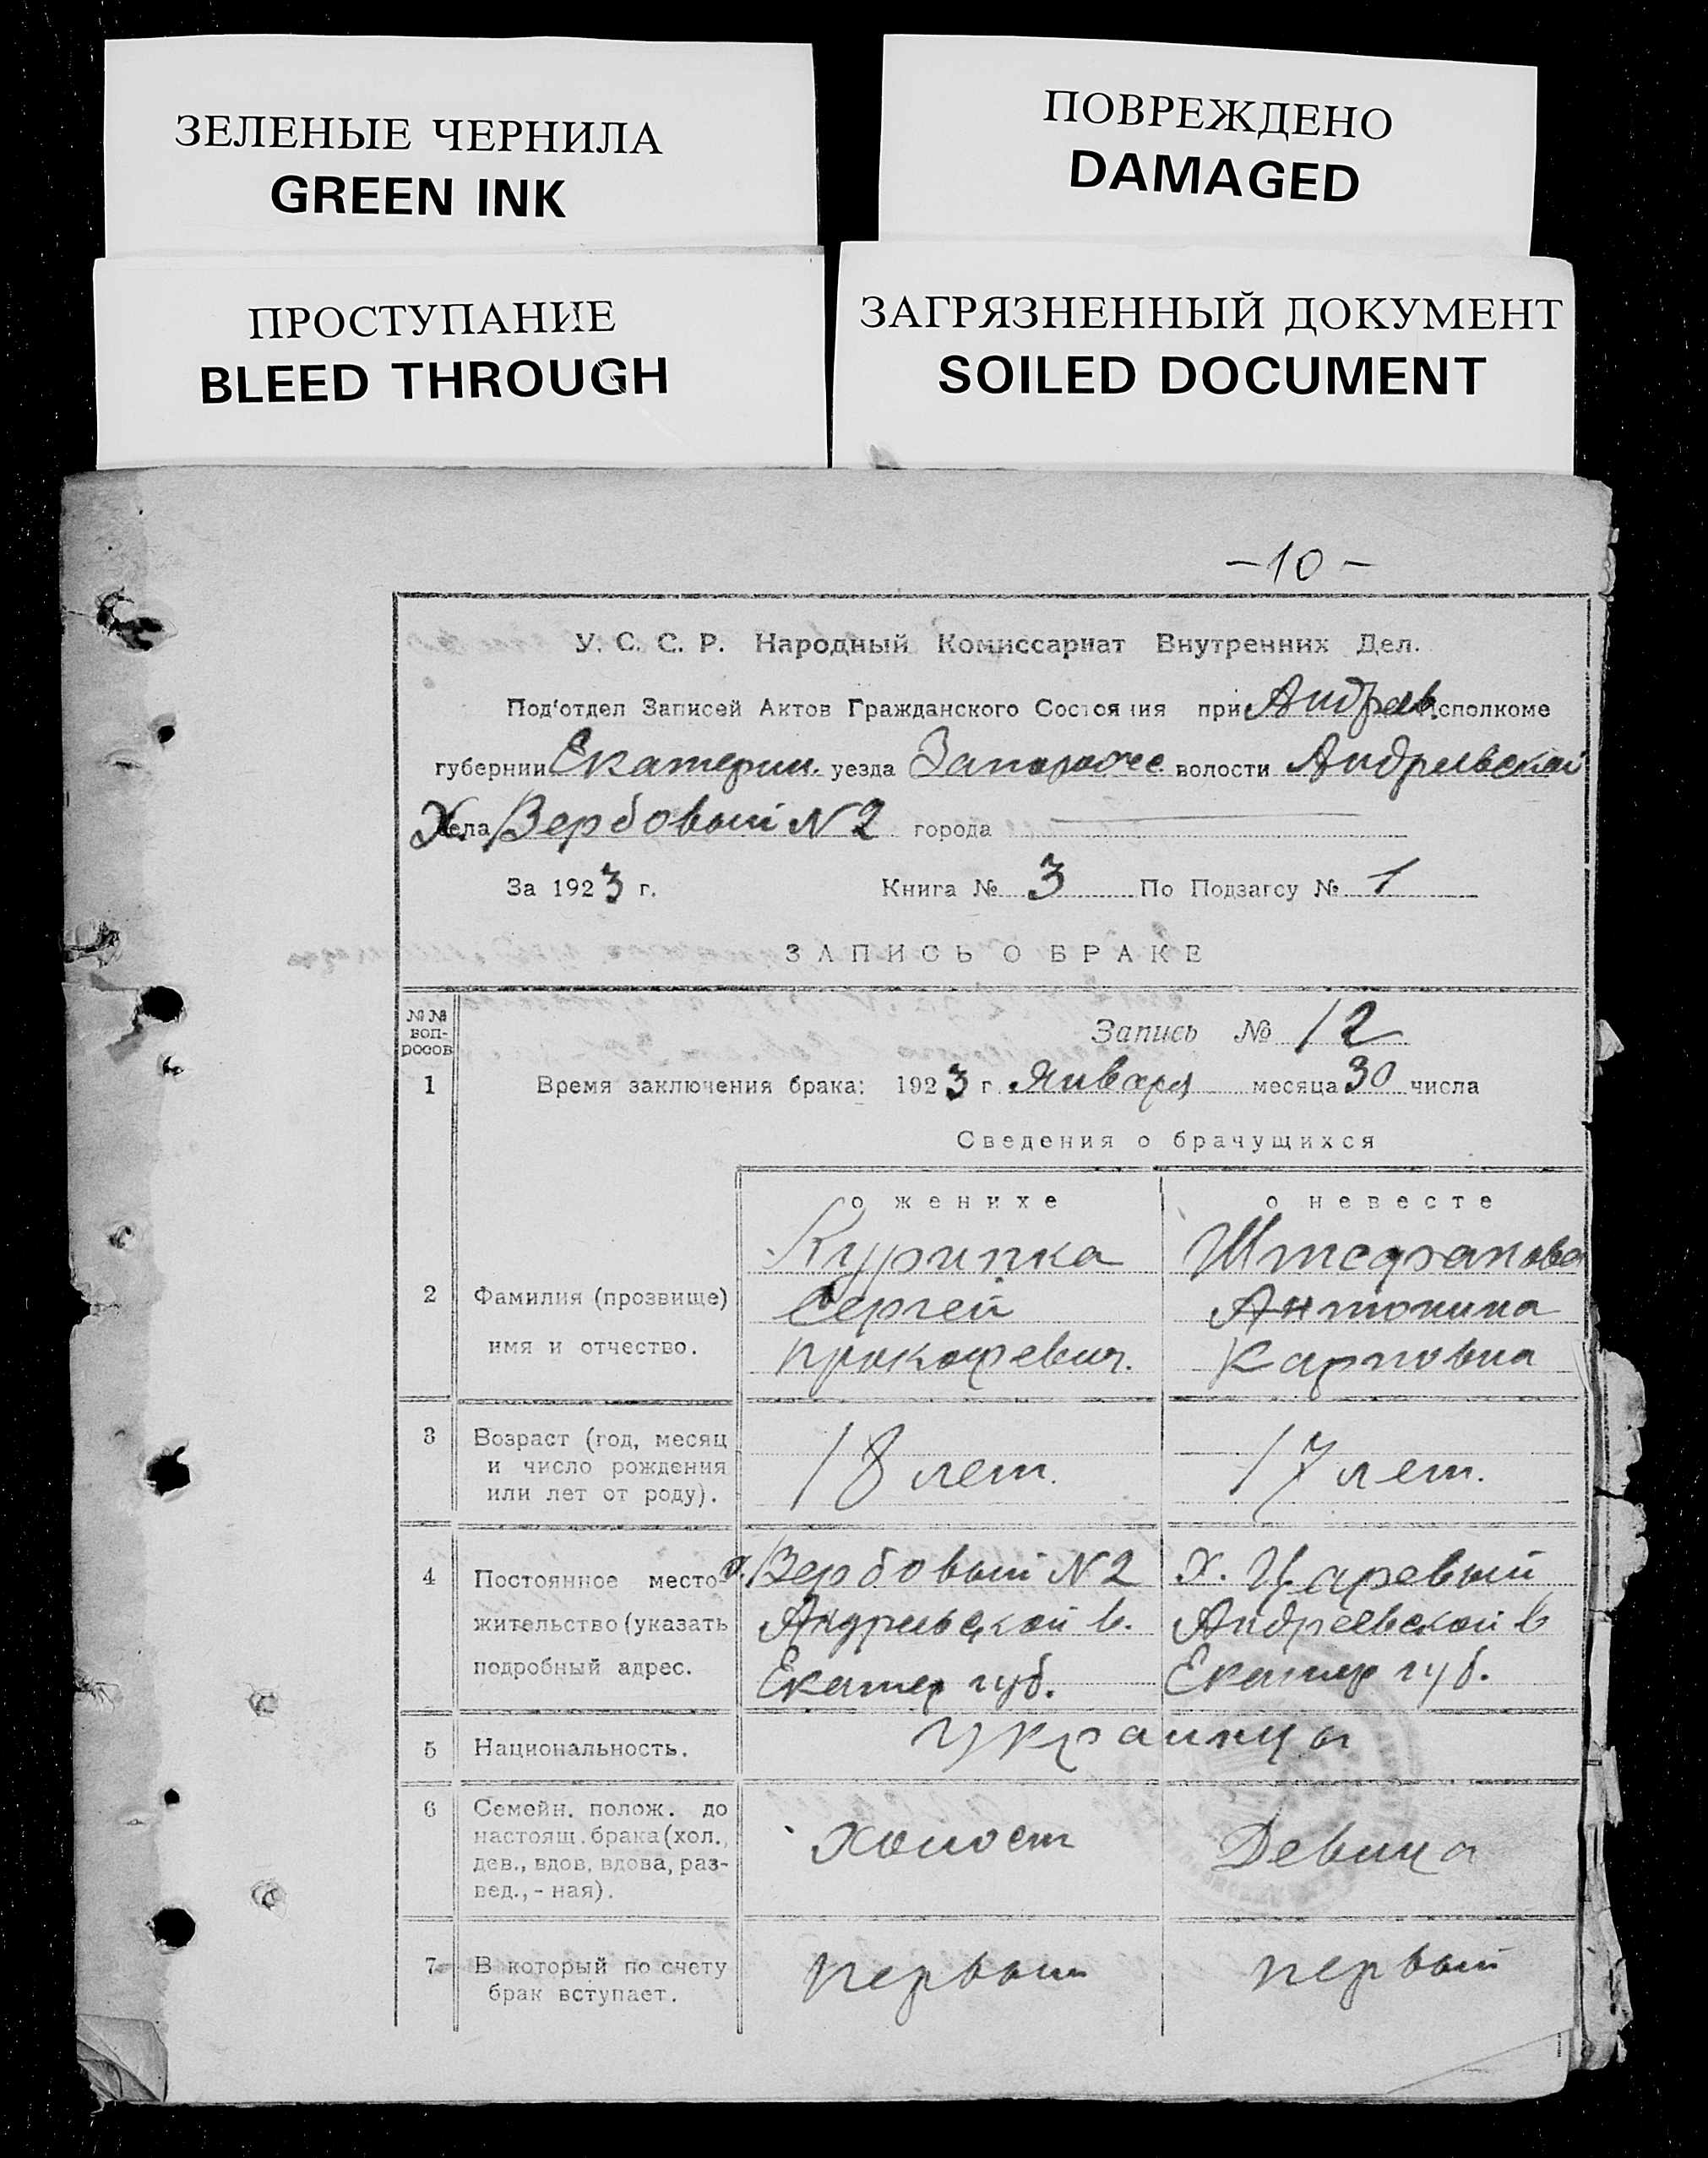 ЗЕЛЕНЫЕ ЧЕРНИЛА
GREEN INK
ПОВРЕЖДЕНО
DAMAGED
ПРОСТУПАНИЕ
BLEED THROUGH
ЗАГРЯЗНЕННЫЙ ДОКУМЕНТ
SOILED DOCUMENT
—10—
У. С. С. Р. Народный Комиссариат Внутренних Дел.
Под'отдел Записей Актов Гражданского Состояния при Андреев. Исполкоме
губернии Екатерин. уезда Запорожс. волости Андреевской
Х. села Вербовый N2 города
За 1923 г. Книга № 3 По Подзагсу № 1
ЗАПИСЬ О БРАКЕ
№№ воп-росов
Запись № 12
1 Время заключения брака: 1923 г. Января месяца 30 числа
Сведения о брачущихся
о женихе о невесте
Курипка Штефанова
2 Фамилия (прозвище) Сергей Антонина
имя и отчество. Прокофевич. Карповна
3 Возраст (год, месяц
и число рождения 18 лет. 17 лет.
или лет от роду).
4 Постоянное место- х. Вербовый N2 х. Царевый
жительство (указать Андреевской в. Андреевской в
подробный адрес. Екатер губ. Екатер губ.
5 Национальность. Украинцы
6 Семейн. полож. до
настоящ. брака (хол., холост Девица
дев., вдов, вдова, раз-
вед., - ная).
7 В который по счету первый первый
брак вступает.